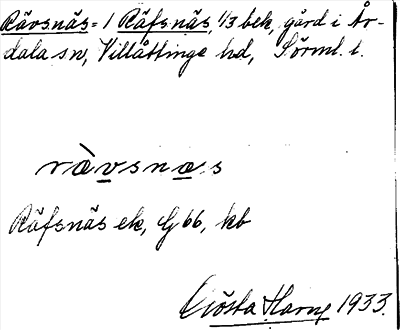 Rävsnäs = 1 Räfsnäs, 1/3 bek, gård i År-
dala sn, Villåttinge hd, Sörml. l.
rävsnæ.s
Räfsnäs ek, G 66, kb
Gösta Harne 1933.